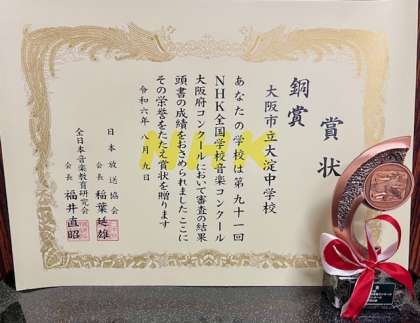 賞状
銅賞
大阪市立大淀中学校
あなたの学校は第九十一回
NHK全国学校音楽コンクール
大阪府コンクールにおいて審査の結果
頭書の成績をおさめられましたここに
その栄誉をたたえ賞状を贈ります
令和六年八月九日
日本放送協会
会長 稲葉延雄
全日本音楽教育研究会
会長 福井直昭